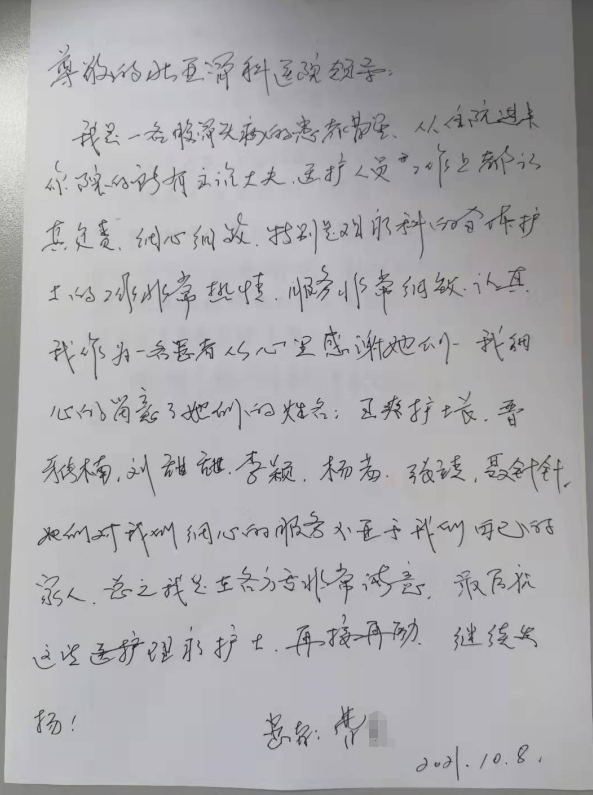 尊敬的 骨科医院领导:
我是一名股骨头病的患者费 从住院进来
你院的所有主治大夫、医护人员 工作上都认
真负责、细心细致、特别是对 科的 护
士的工作非常热情、服务非常细致、认真
我作为一名患者从心里感谢她们 我细
心的留意了她们的姓名: 王爽护士长、
楠、刘甜甜、李颖、杨 、张 、聂针针、
她们对我们细心的服务不亚于我们自己的
家人、总之我是在各方面非常满意、最后祝
这些 护理 护士、再接再励、继续发
扬!
患者: 费
2021.10.8.